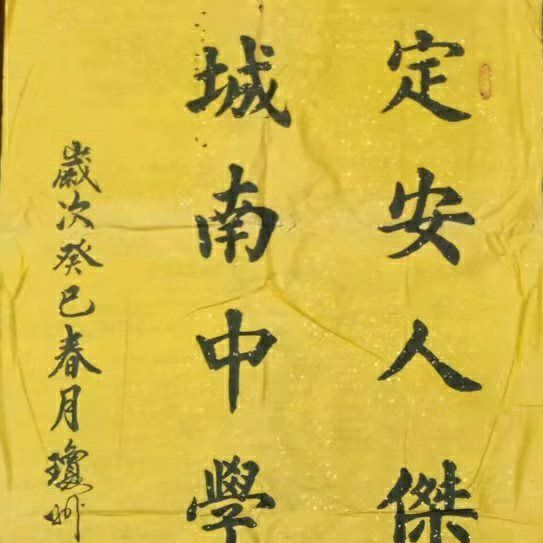 定安人傑
城南中學
歲次癸巳春月瓊州